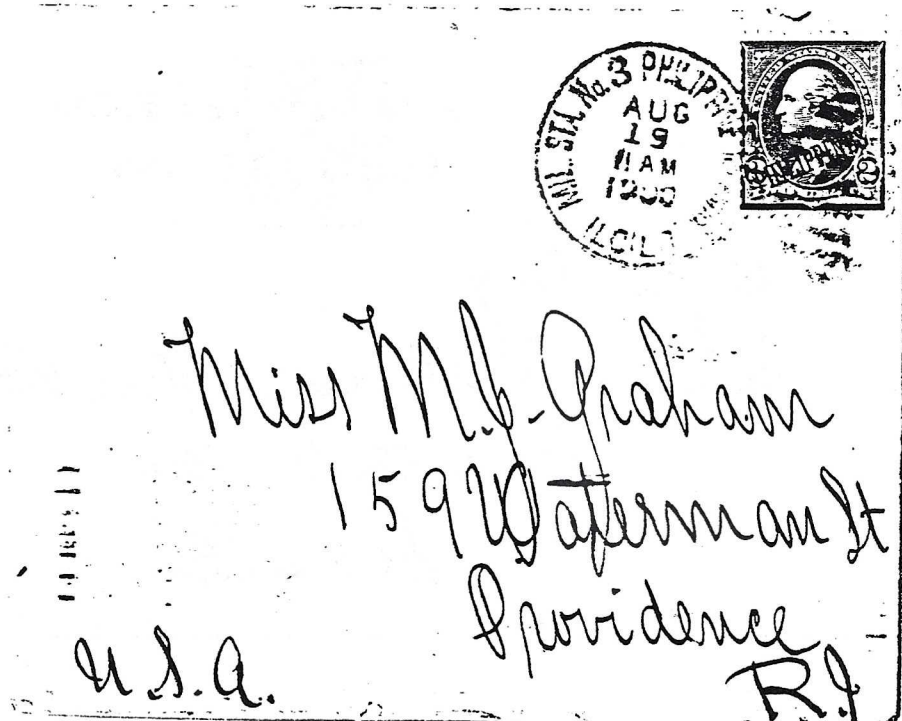 MIL. STA. No. 3 PHILIPPINE
AUG
19
11 AM
1900
ILOILO
PHILIPPINES
2
Miss M. J. Graham
159 Waterman St
Providence
R.I
U.S.A.